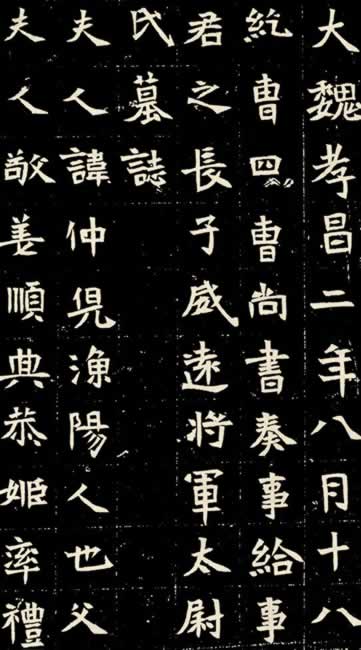 大魏孝昌二年八月十八
紇曹四曹尚書奏事給事
君之長子威遠將軍太尉
氏墓誌
夫人諱仲兒漁陽人也父
夫人敬姜順典恭姬率禮